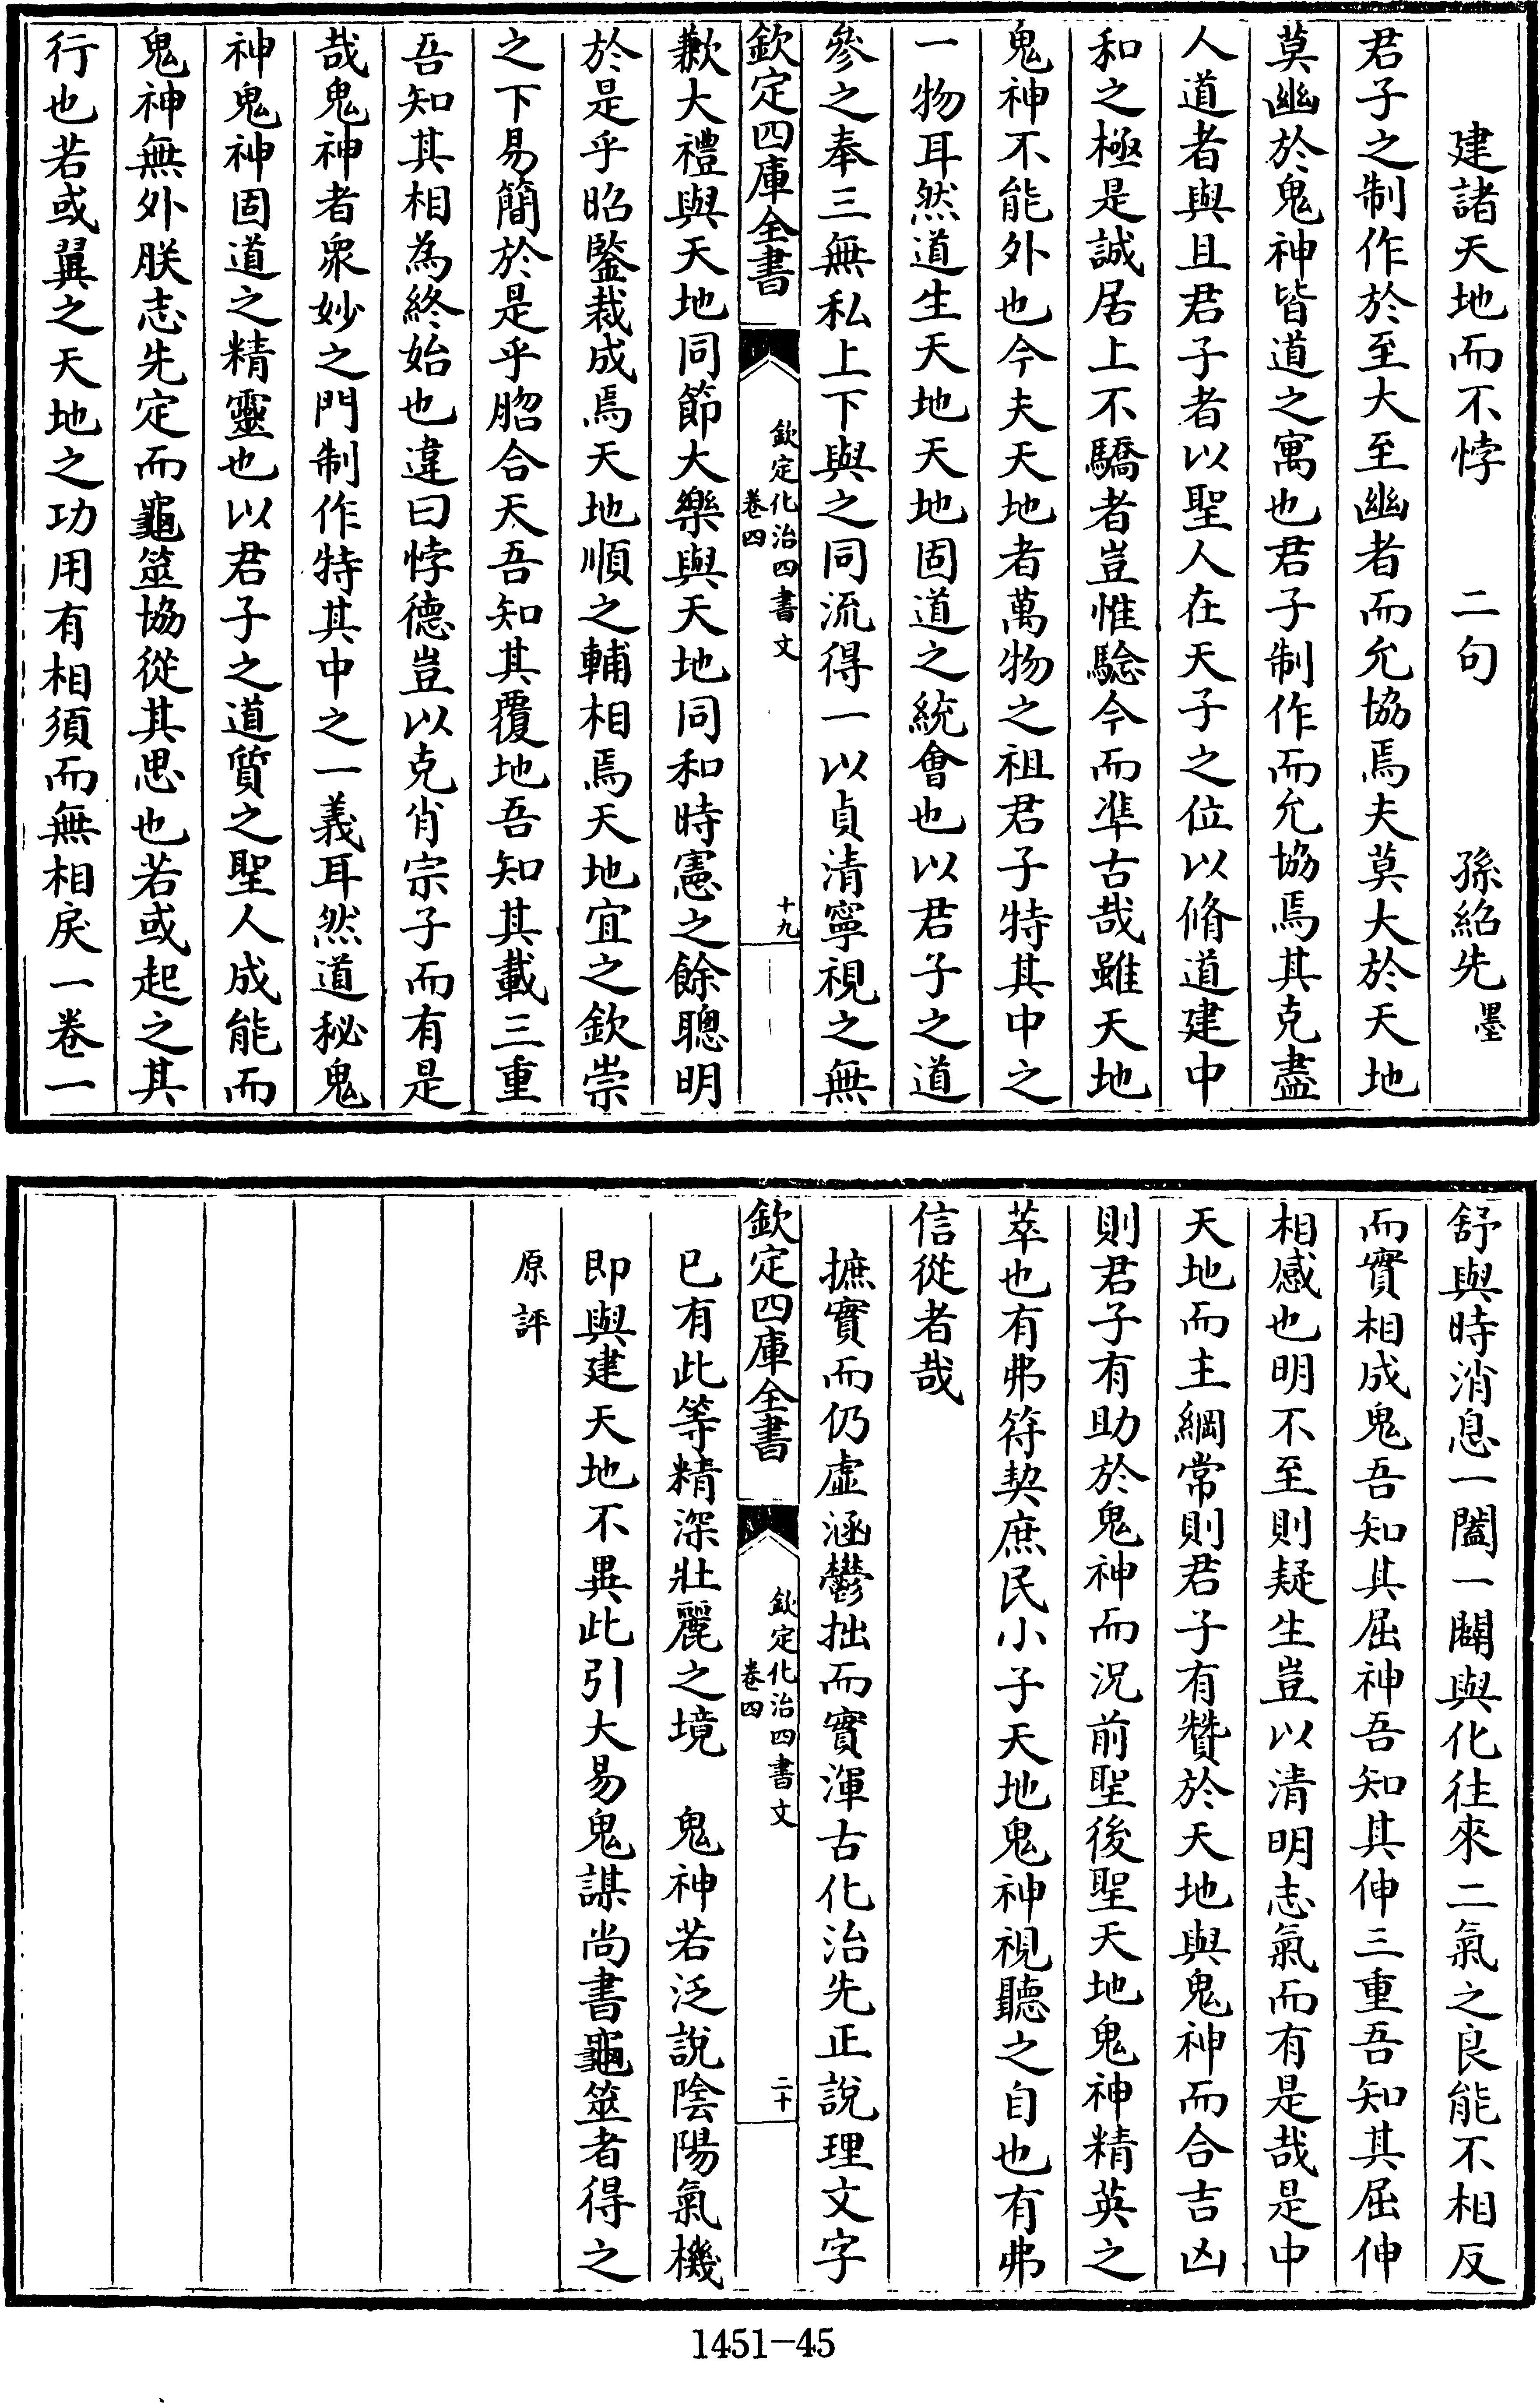 建諸天地而不悖　二句　孫紹先墨
君子之制作於至大至幽者而允協焉夫莫大於天地
莫幽於鬼神皆道之寓也君子制作而允協焉其克盡
人道者與且君子者以聖人在天子之位以脩道建中
和之極是誠居上不驕者豈惟驗今而準古哉雖天地
鬼神不能外也今夫天地者萬物之祖君子特其中之
一物耳然道生天地天地固道之統會也以君子之道
參之奉三無私上下與之同流得一以貞清寧視之無
欽定四庫全書
欽定化治四書文
卷四
十九
歉大禮與天地同節大樂與天地同和時憲之餘聰明
於是乎昭鑒裁成焉天地順之輔相焉天地宜之欽崇
之下易簡於是乎脗合天吾知其覆地吾知其載三重
吾知其相為終始也違曰悖德豈以克肖宗子而有是
哉鬼神者衆妙之門制作特其中之一義耳然道秘鬼
神鬼神固道之精靈也以君子之道質之聖人成能而
鬼神無外朕志先定而龜筮協從其思也若或起之其
行也若或翼之天地之功用有相須而無相戾一卷一
舒與時消息一闔一闢與化往來二氣之良能不相反
而實相成鬼吾知其屈神吾知其伸三重吾知其屈伸
相感也明不至則疑生豈以清明志氣而有是哉是中
天地而主綱常則君子有贊於天地與鬼神而合吉凶
則君子有助於鬼神而況前聖後聖天地鬼神精英之
萃也有弗符契庶民小子天地鬼神視聽之自也有弗
信從者哉
摭實而仍虛涵鬱拙而實渾古化治先正說理文字
欽定四庫全書
欽定化治四書文
卷四
二十
已有此等精深壯麗之境　鬼神若泛說陰陽氣機
即與建天地不異此引大易鬼謀尚書龜筮者得之
原評
1451-45